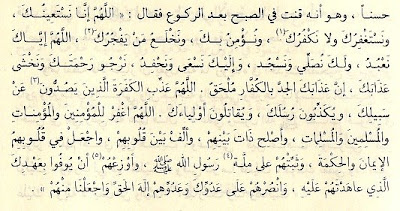 حسناً ، وهو أنه قنت في الصبح بعد الركوع فقال : « اللَّهُمَّ إِنَّا نَسْتَعِينُكَ ،
وَنَسْتَغْفِرُكَ ولا نَكْفُرُكَ(١) ، وَنُؤْمِنُ بِكَ ، وَنَخْلَعُ مَنْ يَفْجُرُكَ(٢) ، اللَّهُمَّ إِيَّاكَ
نَعْبُدُ ، ولَكَ نُصَلِّي وَنَسْجُد ، وَإِلَيْكَ نَسْعَى وَنَحْفِدُ ، نَرْجُو رَحْمَتَكَ وَنَخْشَى
عَذَابَكَ ، إنَّ عَذَابَكَ الجِدَّ بالكُفَّارِ مُلْحَقٌ . اللَّهُمَّ عَذِّبِ الكَفَرَةَ الَّذِينَ يَصُدُّونَ(٣) عَنْ
سَبِيلِكَ ، وَيُكَذِّبُونَ رُسُلَكَ ، وَيُقاتِلُونَ أَوْلِيَاءَكَ . اللَّهُمَّ اغْفِرْ لِلْمُؤْمِنِينَ والْمُؤْمِناتِ
والمُسْلِمِينَ والمُسْلِماتِ ، وأصْلِحْ ذَاتَ بَيْنِهِمْ ، وألِّفْ بَيْنَ قُلُوبِهِمْ ، وَاجْعَلْ فِي قُلُوبِهِمُ
الإِيمَانَ والحِكْمَةَ ، وَثَبِّتْهُمْ عَلى مِلَّةِ(٤) رَسُولِ اللهِ ﷺ ، وَأَوْزِعْهُمْ(٥) أَنْ يُوفُوا بِعَهْدِكَ
الَّذي عاهَدْتَهُمْ عَلَيْهِ ، وَانْصُرْهُمْ عَلَى عَدُوِّكَ وَعَدُوِّهِمْ إلهَ الحَقِّ وَاجْعَلْنا مِنْهُمْ » .